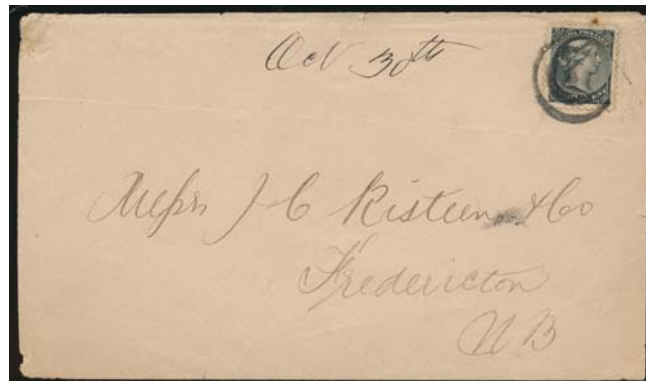 Oct 30th
Messrs J C Risteen & Co
Fredericton
N B